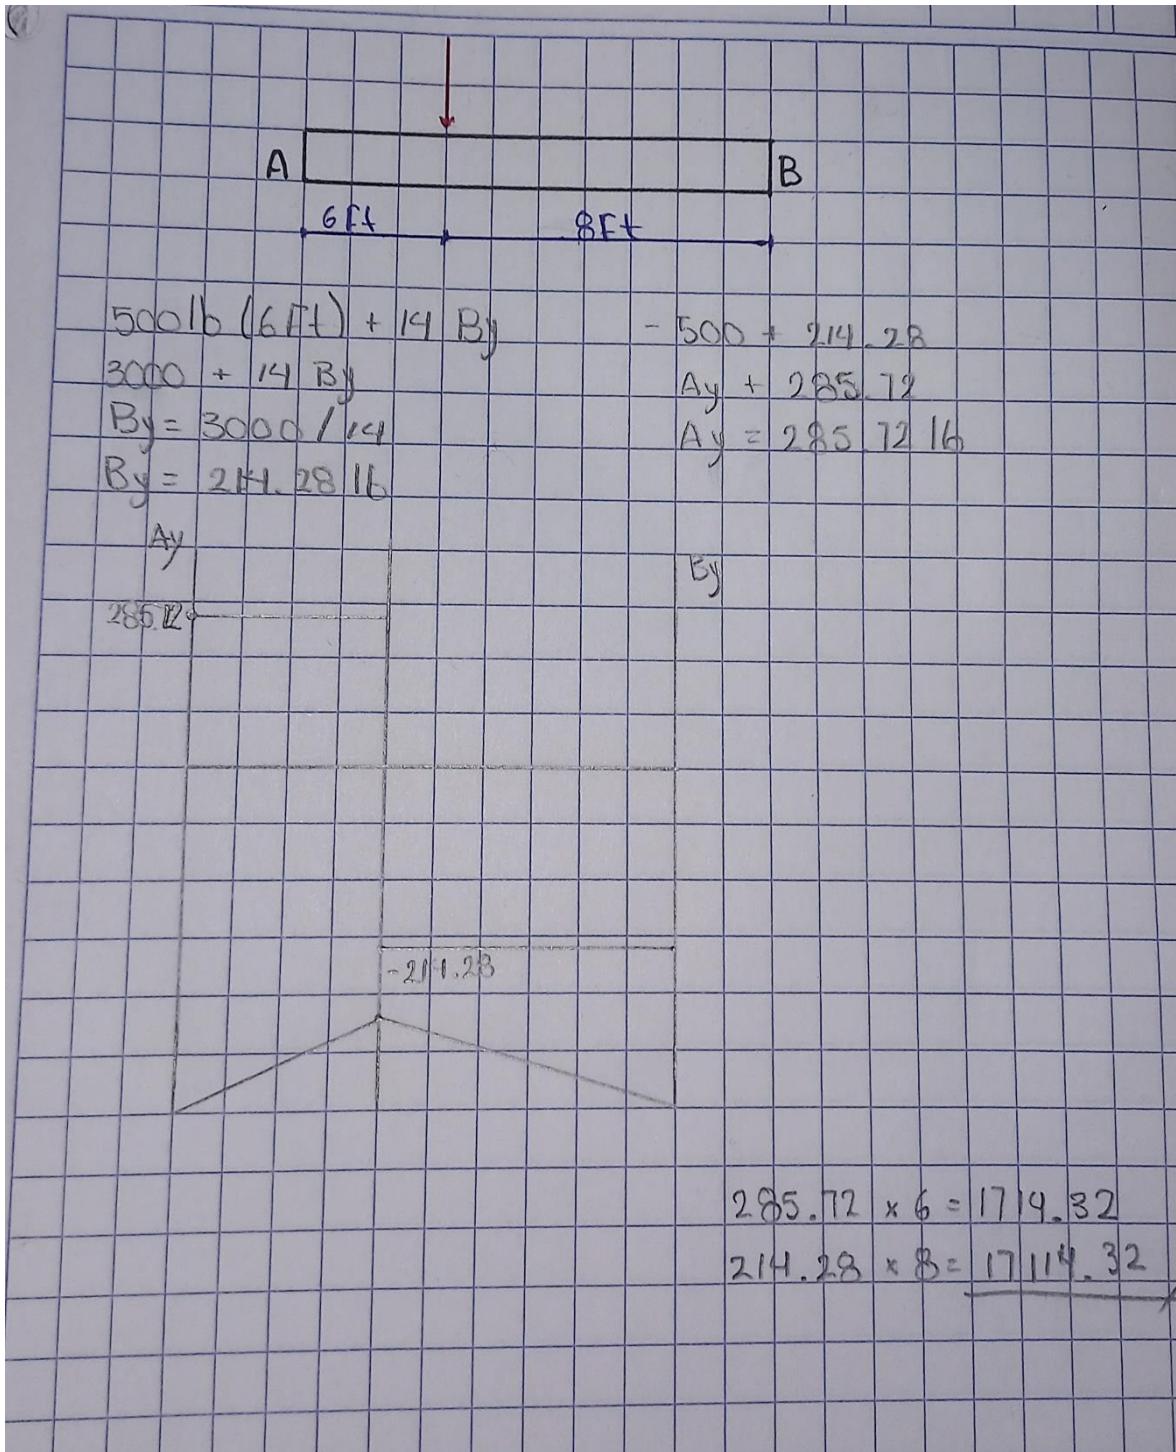 A B
6Ft 8Ft
500lb (6Ft) + 14 By
3000 + 14 By
By = 3000 / 14
By = 214.28 lb
- 500 + 214.28
Ay + 285.72
Ay = 285.72 lb
Ay
By
285.72
-214.28
285.72 x 6 = 1714.32
214.28 x 8 = 17114.32